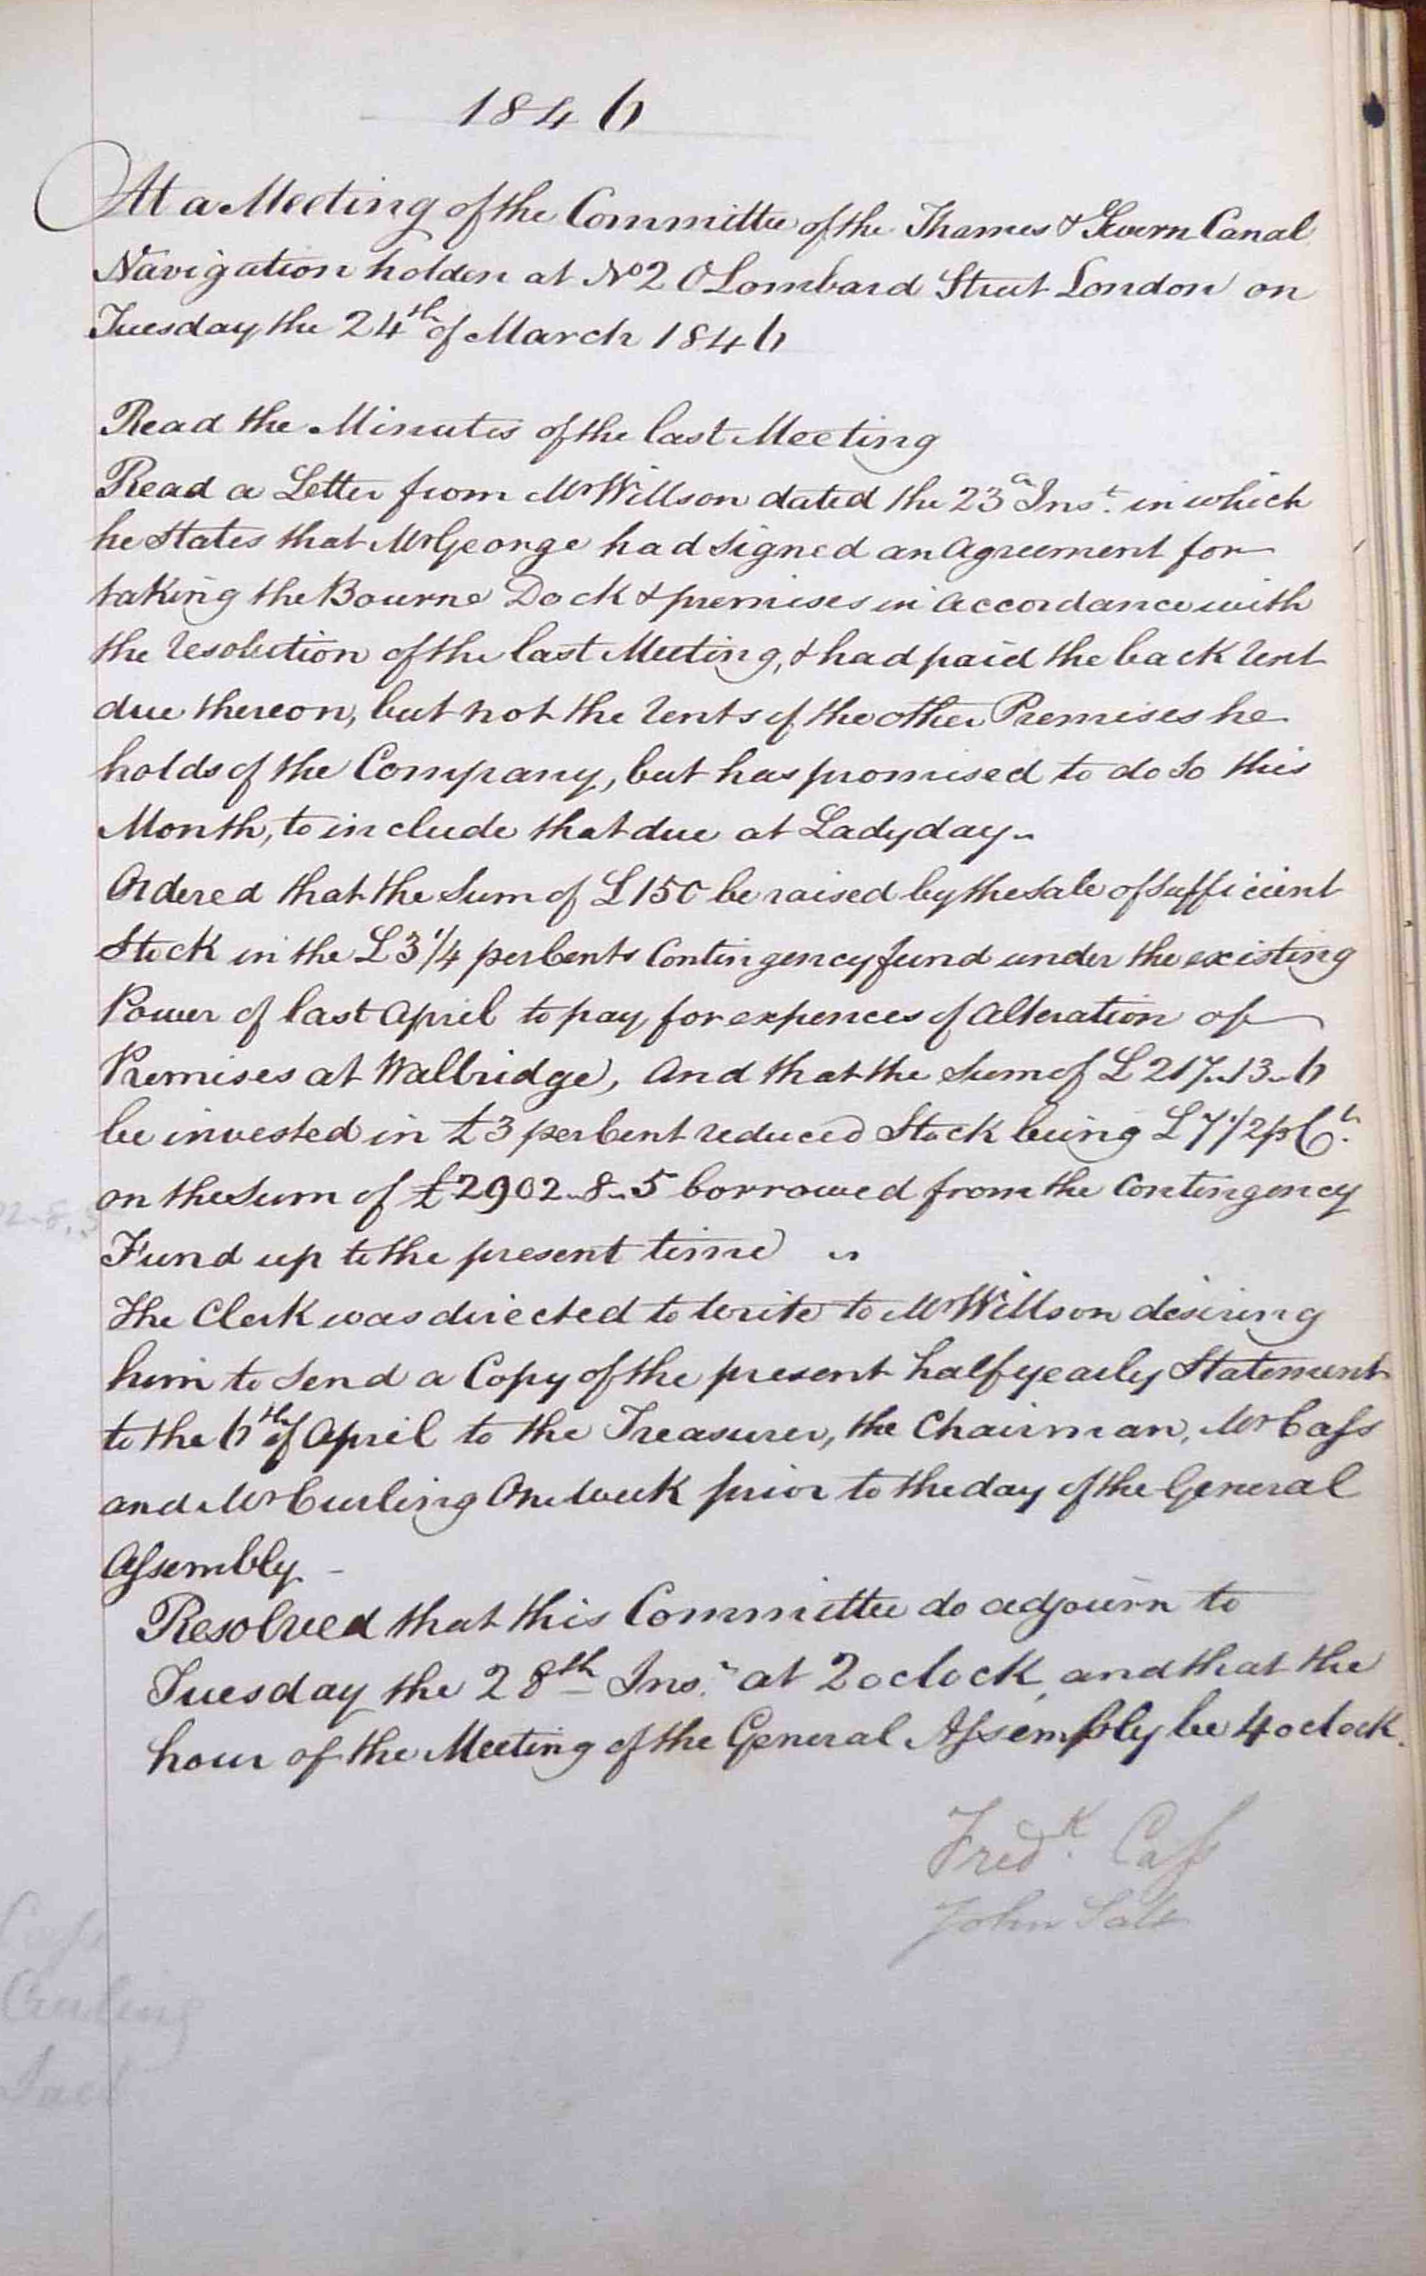 1846
At a Meeting of the Committee of the Thames & Severn Canal
Navigation holden at No 20 Lombard Street London on
Tuesday the 24th of March 1846
Read the Minutes of the last Meeting
Read a Letter from Mr Willson dated the 23d Inst. in which
he States that Mr George had signed an Agreement for
taking the Bourne Dock & premises in accordance with
the resolution of the last Meeting, & had paid the back rent
due thereon, but not the rents of the other Premises he
holds of the Company, but has promised to do so this
Month, to include that due at Ladyday..
Ordered that the Sum of £150 be raised by the Sale of sufficient
Stock in the £3 1/4 per Cents Contingency fund under the existing
Power of last April to pay for expences of Alteration of
Premises at Wallbridge, And that the Sum of £217..13..6
be invested in £3 per Cent reduced Stock being £7 1/2 p Ct.
on the Sum of £2902..8..5 borrowed from the Contingency
Fund up to the present time ..
The Clerk was directed to write to Mr Willson desiring
him to send a Copy of the present half yearly Statement
to the 6th of April to the Treasurer, the Chairman, Mr Cass
and Mr Curling One Week prior to the day of the General
Assembly. -
Resolved that this Committee do adjourn to
Tuesday the 28th Inst. at 2 oclock, and that the
hour of the Meeting of the General Assembly be 4 oclock.
Fredk. Cass
John
2-8.5
Cass
Curling